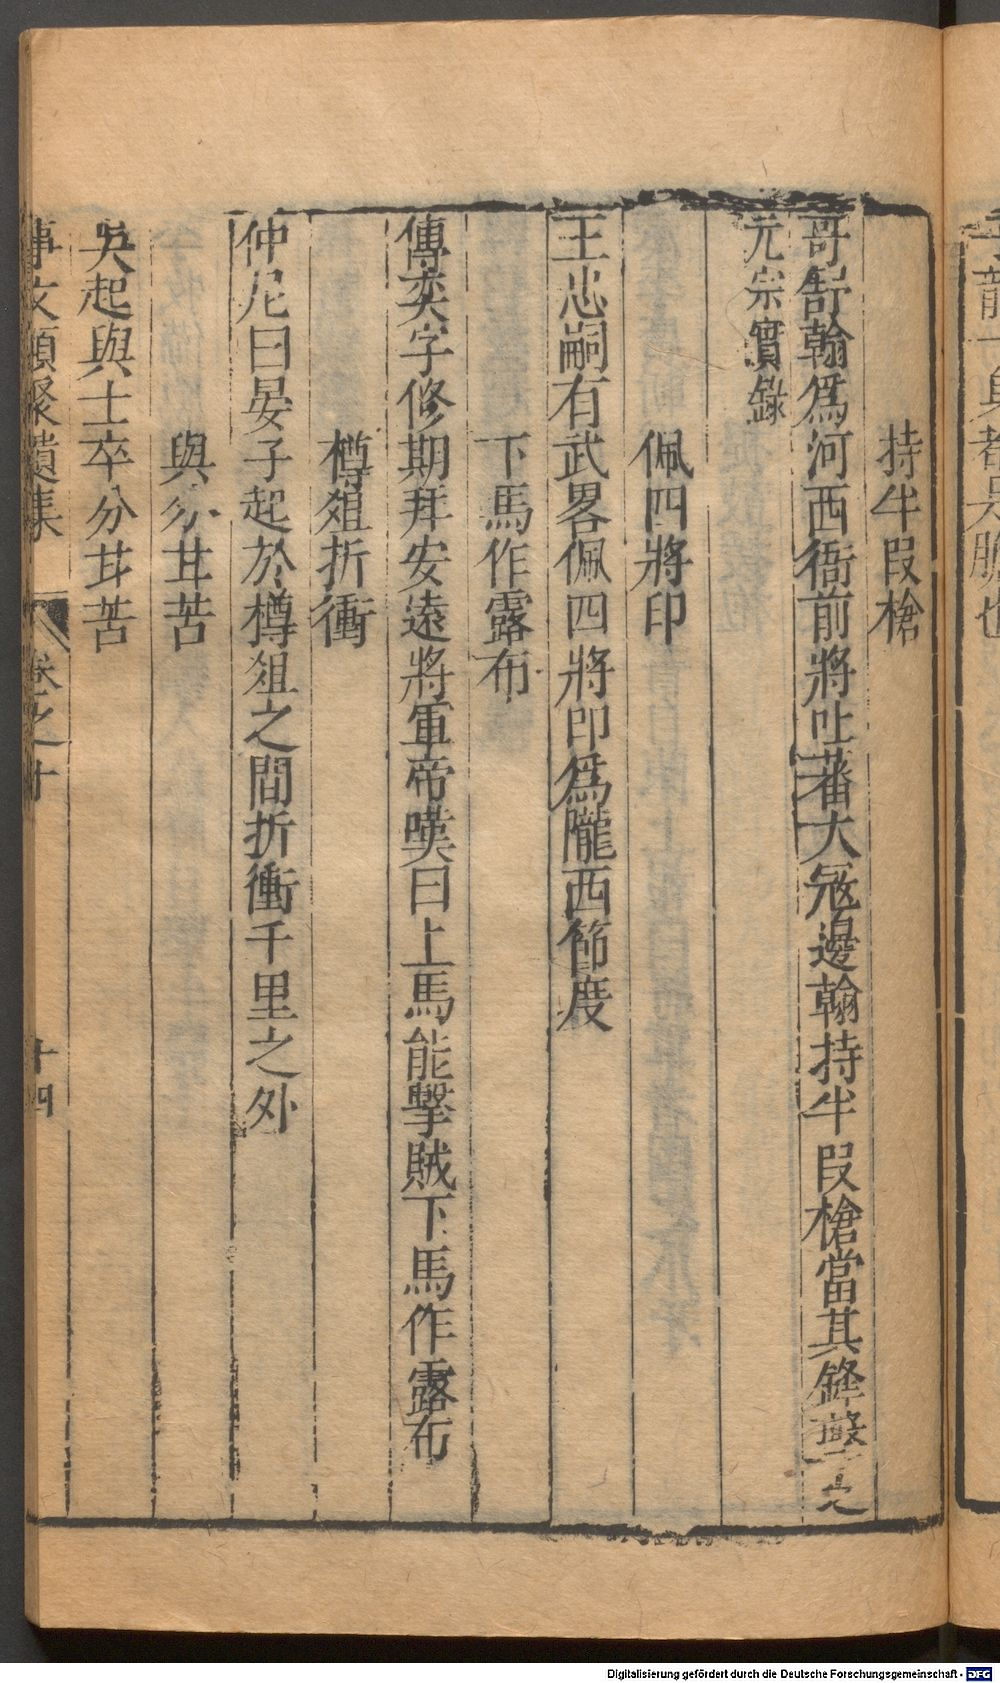 子龍一身都是膽也
持半段槍
哥舒翰爲河西衙前將吐蕃大冦邊翰持半段槍當其鋒擊之
元宗實錄
佩四將印
王忠嗣有武畧佩四將印爲隴西節度
下馬作露布
傅奕字修期拜安遠將軍帝嘆曰上馬能擊賊下馬作露布
樽爼折衝
仲尼曰晏子起於樽爼之間折衝千里之外
與分甘苦
吳起與士卒分甘苦
事文類聚遺集 卷之十 十四
Digitalisierung gefördert durch die Deutsche Forschungsgemeinschaft - DFG